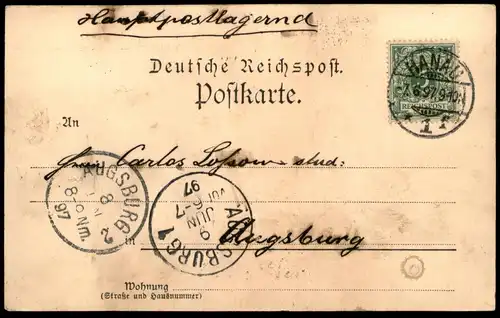 Hauptpostlagernd
Deutsche Reichspost.
Postkarte.
REICHSPOST
HANAU
-7.6.97.9-10
* 1 f
An
Carlos Lossow stud:
AUGSBURG 2
8
8-9 Nm.
97
AUGSBURG 1
9
JUN
6-7
97
in Augsburg
Wohnung
(Straße und Hausnummer)